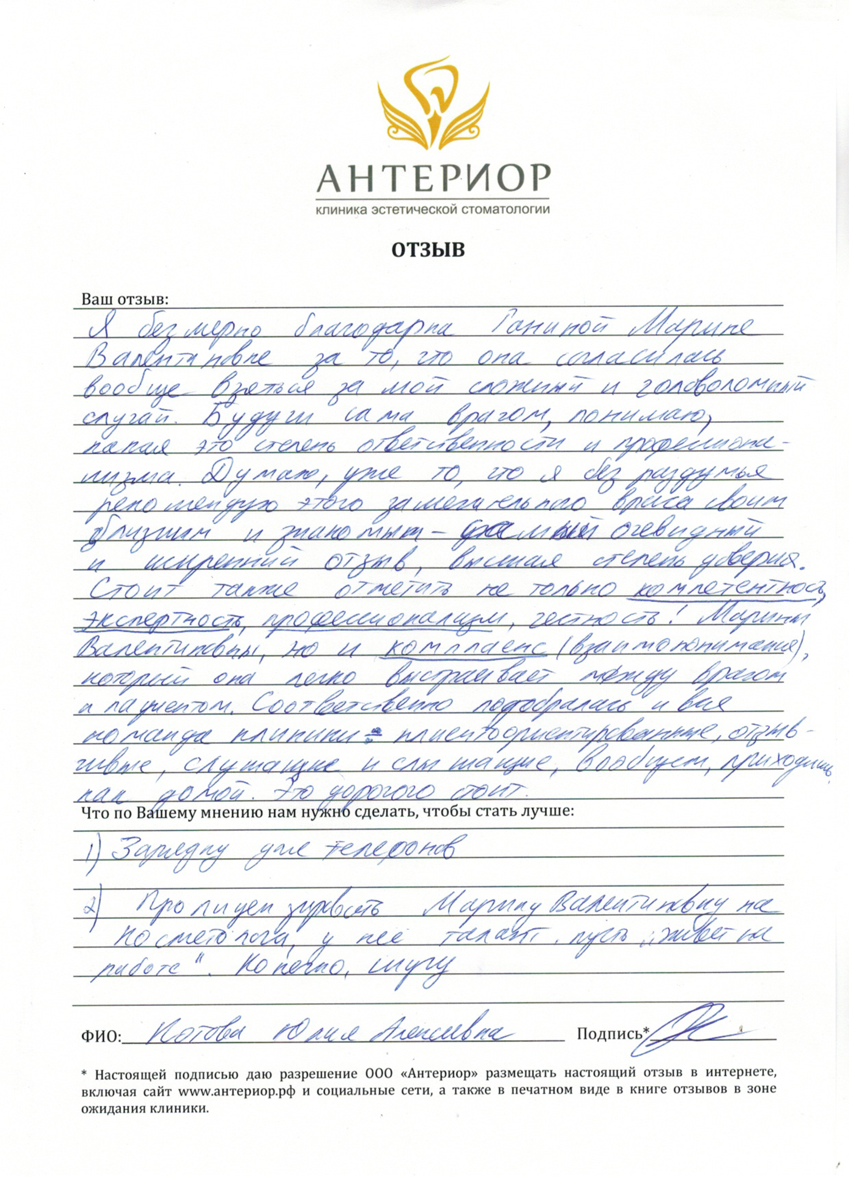 АНТЕРИОР
клиника эстетической стоматологии
ОТЗЫВ
Ваш отзыв:
Я безмерно благодарна Ганиной Марине
Валентиновне за то, что она согласилась
вообще взяться за мой сложный и головоломный
случай. Будучи сама врачом, понимаю,
какая это степень ответственности и профессиона-
лизма. Думаю, уже то, что я без раздумья
рекомендую этого замечательного врача своим
близким и знакомым – самый очевидный
и искренний отзыв, высшая степень доверия.
Стоит также отметить не только компетентность,
экспертность, профессионализм, честность! Марины
Валентиновны, но и комплаенс (взаимопонимание),
который она легко выстраивает между врачом
и пациентом. Соответственно подобралась и вся
команда клиники – клиентоориентированные, отзыв-
чивые, слушающие и слышащие, вообщем, приходишь
как домой. Это дорогого стоит.
Что по Вашему мнению нам нужно сделать, чтобы стать лучше:
1) Зарядку для телефонов
2) Пролицензировать Марину Валентиновну на
косметолога, у нее талант. пусть „живет на
работе". Конечно, шучу
ФИО: Котова Юлия Алексеевна Подпись*
* Настоящей подписью даю разрешение ООО «Антериор» размещать настоящий отзыв в интернете,
включая сайт www.антериор.рф и социальные сети, а также в печатном виде в книге отзывов в зоне
ожидания клиники.